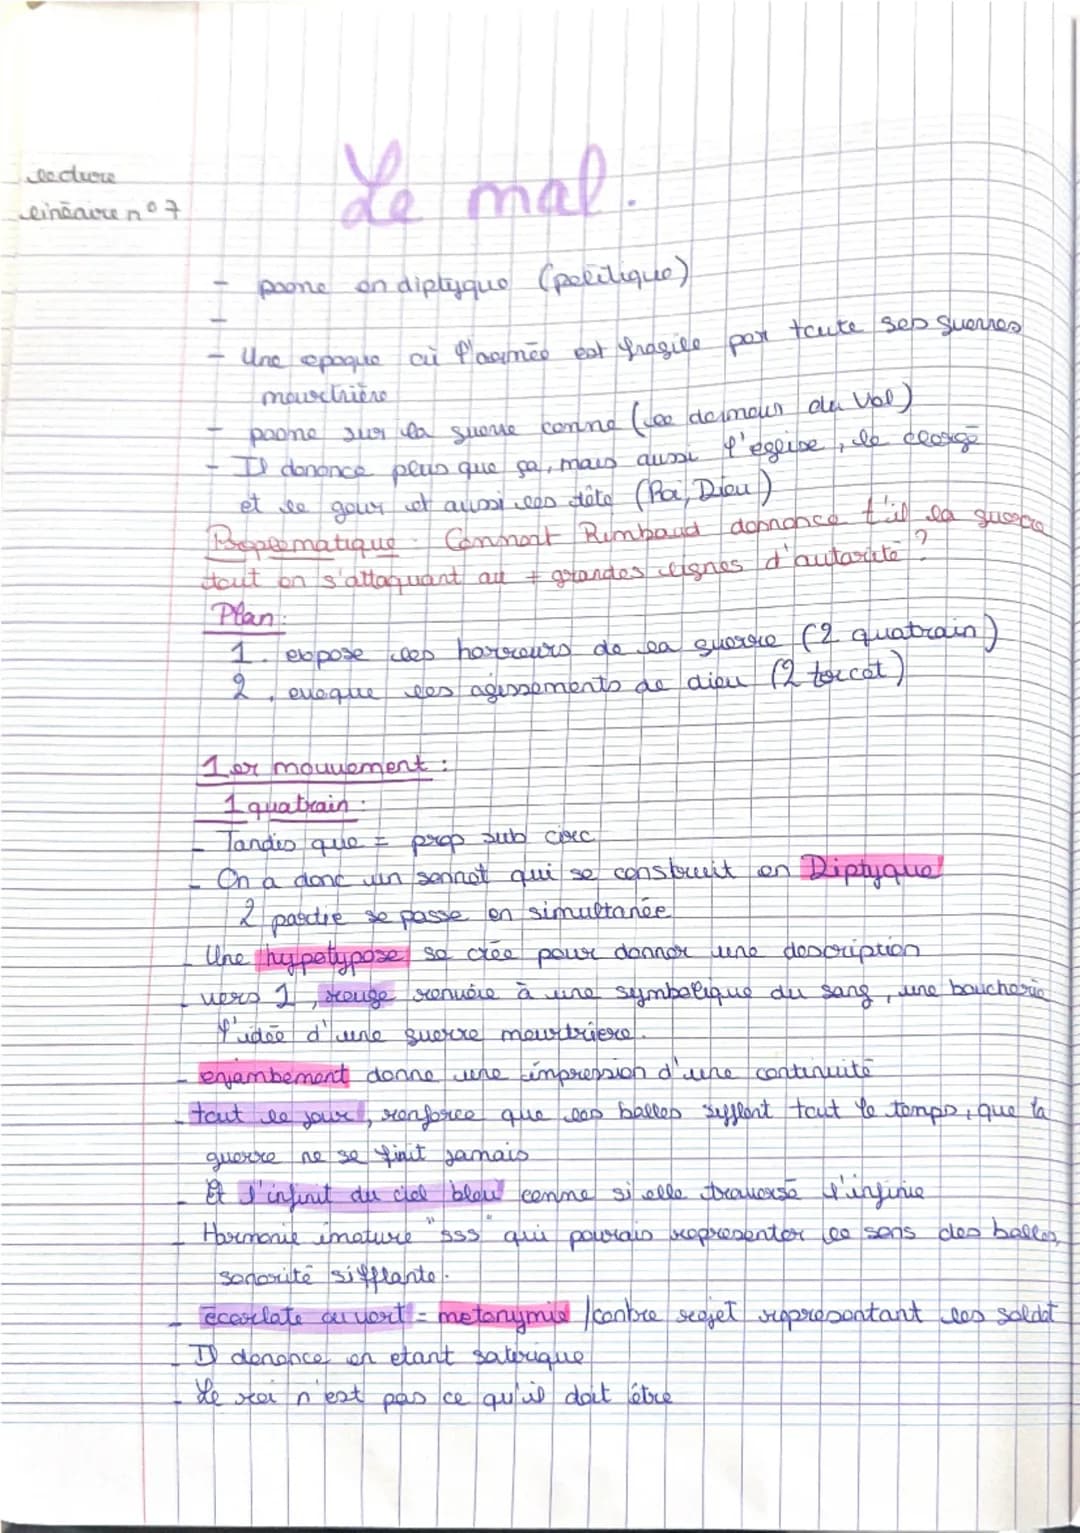 lecture
linéaire n°7
Le mal.
- poème en diptyque (politique)
-
- Une epoque où l'armée est fragile par toute ses guerres
meurtrière
- poème sur la guerre comme (le dormeur du Val)
- Il dénonce plus que ça, mais aussi l'église, le clergé
et le gouv et aussi les tête (Roi, Dieu)
Problématique : Comment Rimbaud dénonce t'il la guerre
tout en s'attaquant au + grandes lignes d'autorité ?
Plan :
1. expose les horreurs de la guerre (2 quatrain)
2. evoque les agissements de dieu (2 tercet)
1er mouvement :
1 quatrain :
- Tandis que = prop sub circ
- On a donc un sonnet qui se construit en Diptyque
2 partie se passe en simultanée
- Une hypotypose se crée pour donner une description
- vers 1, rouge renvoie à une symbolique du sang, une boucherie
l'idée d'une guerre meurtriere.
- enjambement donne une impression d'une continuité
- tout le jour, renforce que les balles sifflent tout le temps, que la
guerre ne se finit jamais
- Et l'infinit du ciel bleu comme si elle traversé l'infinie
- Harmonie imature "sss" qui pourais representer le sons des balles,
sonorité sifflante.
- écarlate ou vert = metonymie /contre rejet représentant les soldat
- Il dénonce en etant saterique
- Le roi n'est pas ce qu'il doit être